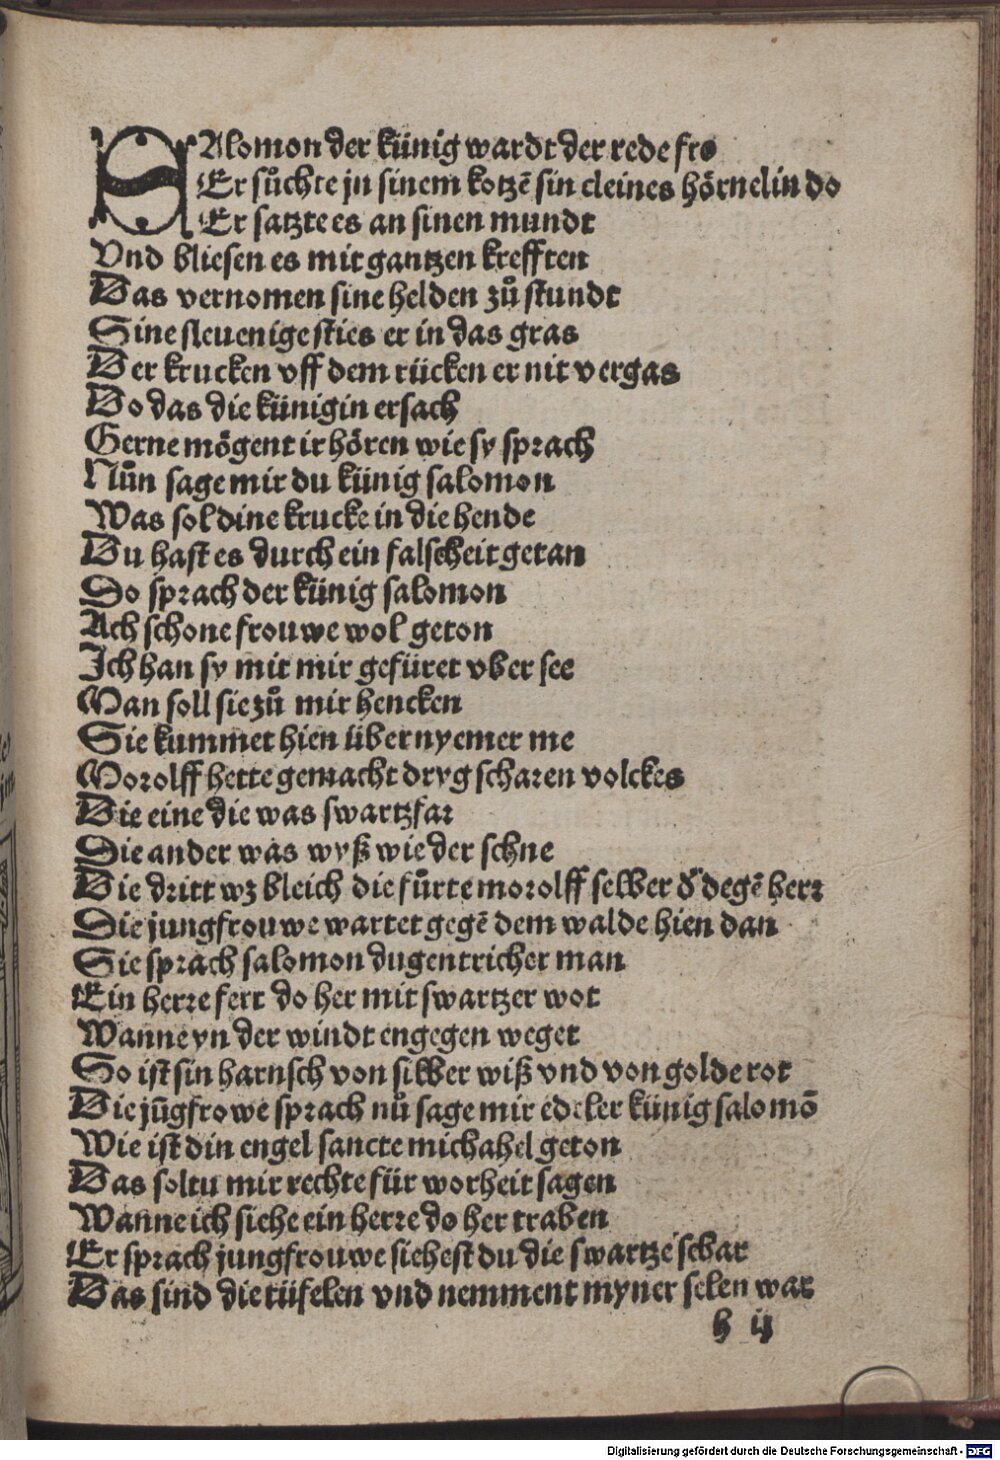 SAlomon der künig wardt der rede fro
Er sůchte jn sinem kotzē sin cleines hörnelin do
Er satzte es an sinen mundt
Vnd bliesen es mit gantzen krefften
Das vernomen sine helden zů stundt
Sine sleuenige sties er in das gras
Der krucken vff dem rücken er nit vergas
Do das die künigin ersach
Gerne mögent ir hören wie sy sprach
Nůn sage mir du künig salomon
Was sol dine krucke in die hende
Du hast es durch ein falscheit getan
Do sprach der künig salomon
Ach schone frouwe wol geton
Ich han sy mit mir gefüret vber see
Man soll sie zů mir hencken
Sie kummet hien über nyemer me
Morolff hette gemacht dryg scharen volckes
Die eine die was swartzfar
Die ander was wyß wie der schne
Die dritt wz bleich die fůrte morolff selber d̕ degē herr
Die jungfrouwe wartet gegē dem walde hien dan
Sie sprach salomon dugentricher man
Ein herre fert do her mit swartzer wot
Wanne yn der windt engegen weget
So ist sin harnsch von silber wiß vnd von golde rot
Die jūgfrowe sprach nů sage mir edeler künig salomō
Wie ist din engel sancte michahel geton
Das soltu mir rechte für worheit sagen
Wanne ich siehe ein herre do her traben
Er sprach jungfrouwe siehest du die swartze schar
Das sind die tüfelen vnd nemment myner selen war
h ij
Digitalisierung gefördert durch die Deutsche Forschungsgemeinschaft - DFG